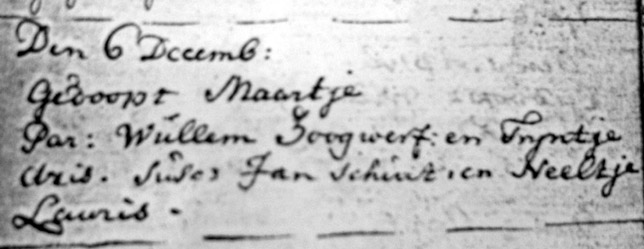 Den 6 Decemb:
Gedoopt Maartje
Par: Willem Hoogwerf: en Trijntje
Aris. Susc: Jan Schuit, en Neeltje
Lauris.